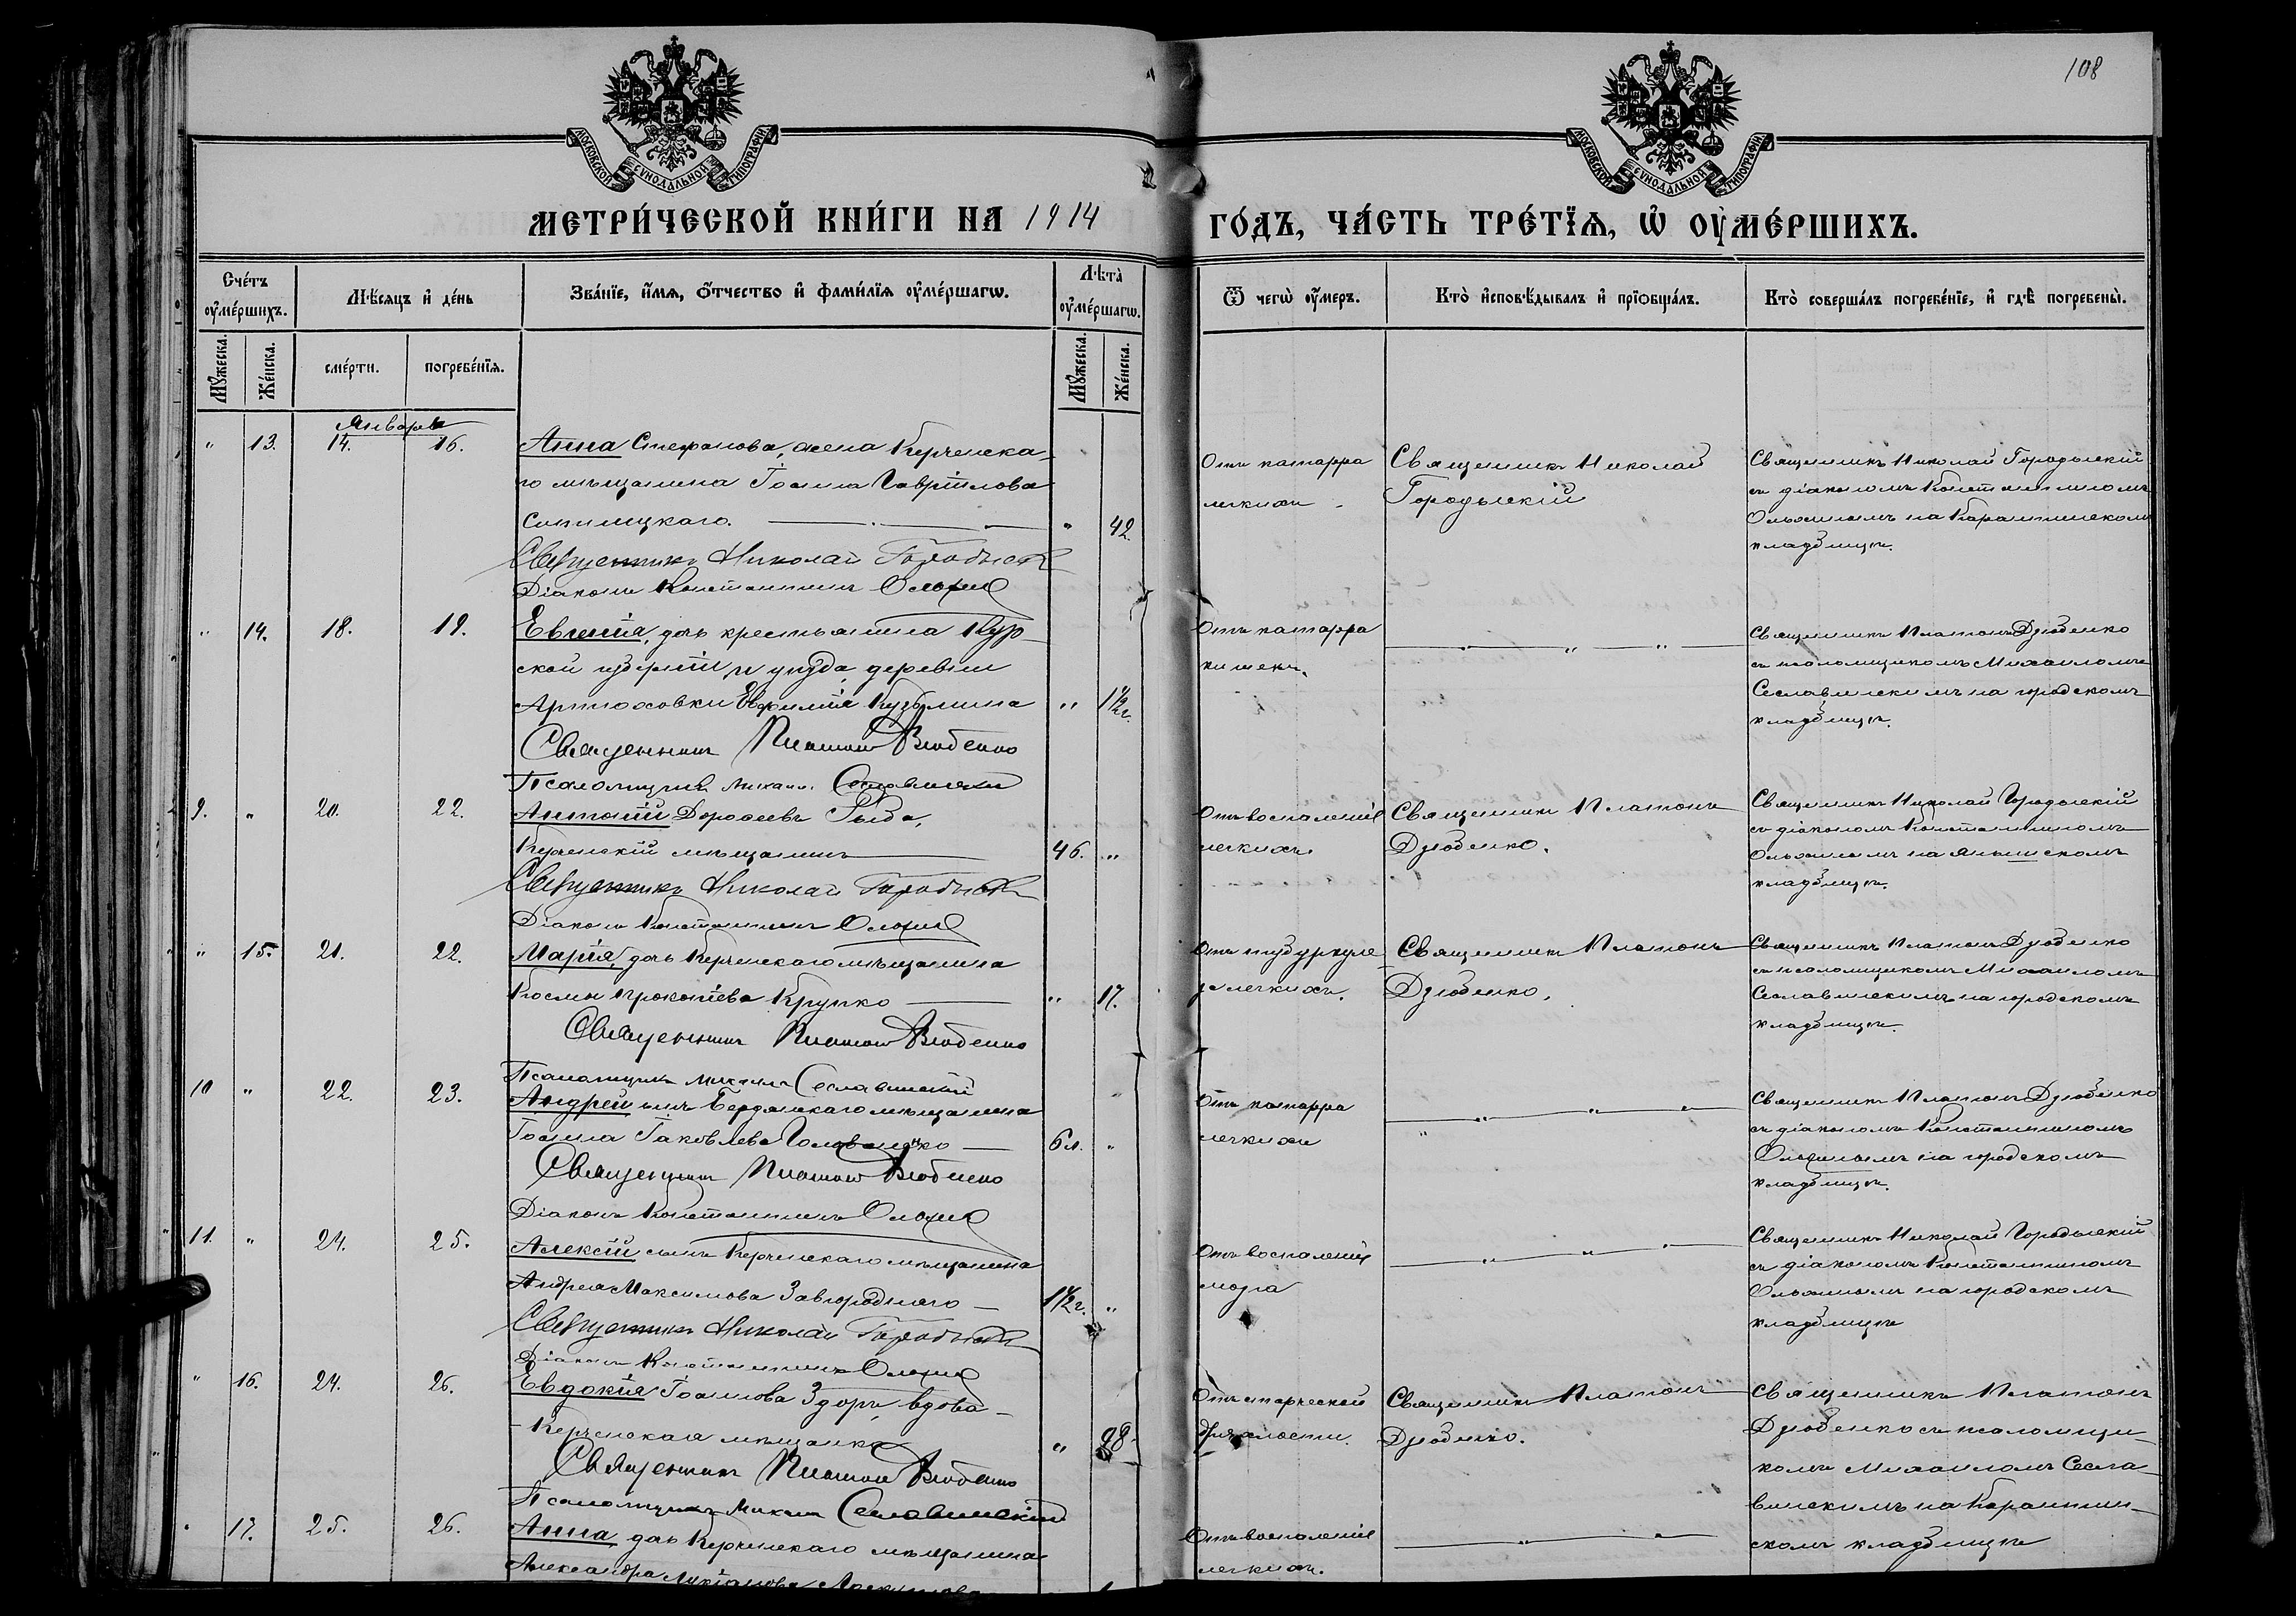 108
МОСКОВСКОЙ СУНОДАЛЬНОЙ ТИПОГРАФІИ
МОСКОВСКОЙ СУНОДАЛЬНОЙ ТИПОГРАФІИ
МЕТРИ́ЧЕСКОЙ КНИ́ГИ НА 1914 ГО́ДЪ, ЧА́СТЬ ТРЕ́ТЇѦ, Ѡ҆ ОУ҆МЕ́РШИХЪ.
Сче́тъ оу҆ме́ршихъ.
Мѣ́сяцъ и҆ де́нь
Зва́нїе, и҆́мѧ, ѻ҆́тчество и҆ фами́лїѧ оу҆ме́ршагѡ.
Лѣ́та оу҆ме́ршагѡ.
Ѿ чегѡ̀ оу҆́меръ.
Кто̀ и҆сповѣ́дывалъ и҆ прїѡбща́лъ.
Кто̀ соверша́лъ погребе́нїе, и҆ гдѣ̀ погребены̀.
Му́жеска. Же́нска.
сме́рти. погребе́нїѧ.
Му́жеска. Же́нска.
Январь
" 13. 14. 16.
Анна Стефанова, жена Керченска-
го мѣщанина Іоанна Гавріилова
" 42.
Священникъ Николай
Діаконъ Константинъ
Отъ катарра
легкихъ.
Священникъ Николай
Городыскій
Священникъ Николай Городыскій
съ діакономъ Константиномъ
на Карантинскомъ
кладбищѣ.
" 14. 18. 19.
Евгенія, дочь крестьянина Кур-
ской губерніи, и уѣзда, деревни
Евфимія Кузьмина " 1½ г.
Священникъ Платонъ Дзюбенко
Псаломщикъ Михаилъ Сеславинскій
Отъ катарра
кишекъ.
Священникъ Платонъ Дзюбенко
съ псаломщикомъ Михаиломъ
Сеславинскимъ на городскомъ
кладбищѣ.
9. " 20. 22.
Антоній Дороѳеевъ Рыба,
Керченскій мѣщанинъ 46. "
Священникъ Николай
Діаконъ Константинъ
Отъ воспаленія
легкихъ.
Священникъ Платонъ
Дзюбенко.
Священникъ Николай Городыскій
съ діакономъ Константиномъ
на
кладбищѣ.
" 15. 21. 22.
Марія, дочь Керченскаго мѣщанина
Космы Прокопіева Крупко " 17.
Священникъ Платонъ Дзюбенко
Псаломщикъ Михаилъ Сеславинскій
Отъ туберкуле
за легкихъ.
Священникъ Платонъ
Дзюбенко.
Священникъ Платонъ Дзюбенко
съ псаломщикомъ Михаиломъ
Сеславинскимъ на городскомъ
кладбищѣ.
10 " 22. 23.
Андрей сынъ Бердянскаго мѣщанина
Іоанна Іаковлева 6 л. "
Священникъ Платонъ Дзюбенко
Діаконъ Константинъ
Отъ катарра
легкихъ
Священникъ Платонъ Дзюбенко
съ діакономъ Константиномъ
на городскомъ
кладбищѣ.
11. " 24. 25.
Алексій сынъ Керченскаго мѣщанина
Андрея Максимова Завгороднего 1½ г. "
Священникъ Николай
Діаконъ Константинъ
Отъ воспаленія
мозга
Священникъ Николай Городыскій
съ діакономъ Константиномъ
на городскомъ
кладбищѣ
" 16. 24. 26.
Евдокія Іоаннова Здоръ, вдова-
Керченская мѣщанка " 88.
Священникъ Платонъ Дзюбенко
Псаломщикъ Михаилъ Сеславинскій
Отъ старческой
дряхлости.
Священникъ Платонъ
Дзюбенко.
Священникъ Платонъ
Дзюбенко съ псаломщи-
комъ Михаиломъ Сесла-
винскимъ на Карантин-
скомъ кладбищѣ
17. 25. 26.
Анна дочь Керченскаго мѣщанина
Александра
Отъ воспаленія
легкихъ.